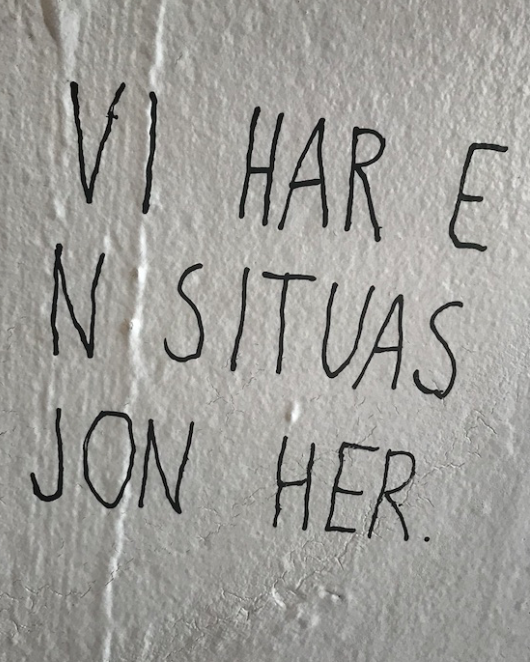 VI HAR E
N SITUAS
JON HER.